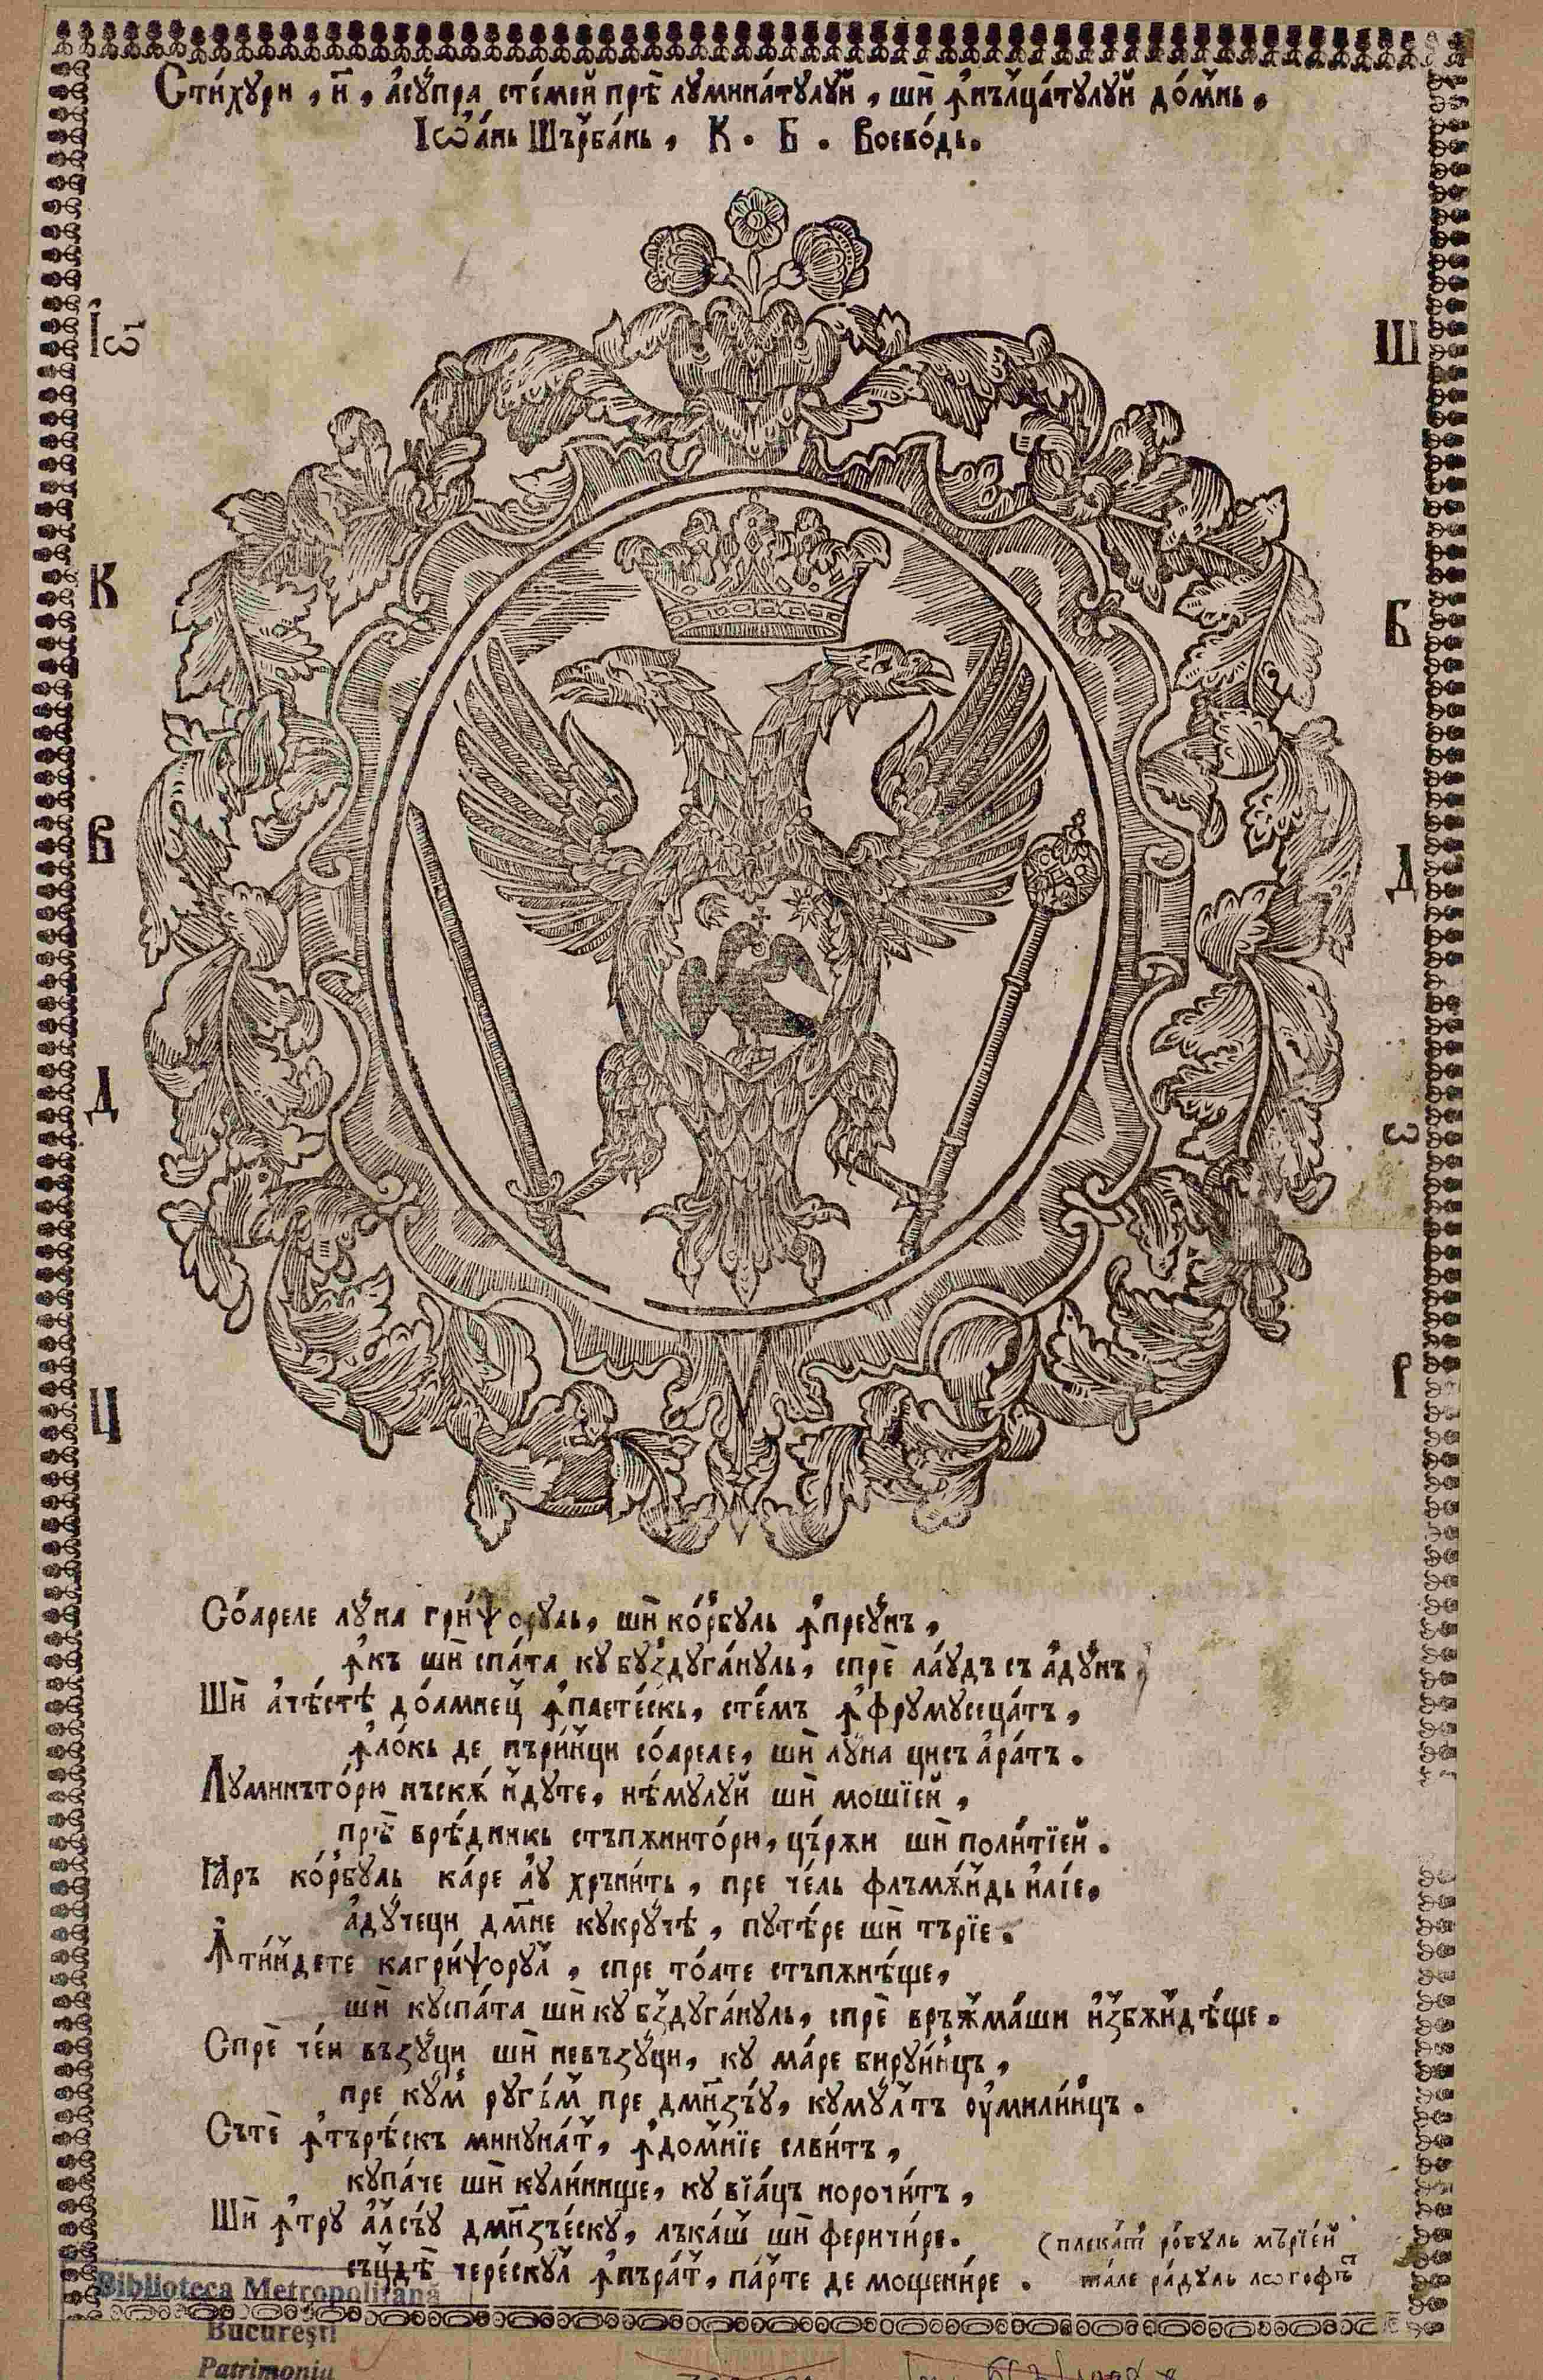 Стїхури, н҃, асупра стемеи прѣ луминатулуи, ши ꙟнълцатулуи домнь,
Іѡань Шърбань, К. Б. Воеводь.
Іѡ Ш
К Б
Б Д
Д З
Ц Р
Соареле луна грѵѱорꙋль, ши корбуль ꙟпреунъ,
ꙟкъ ши спата ку буздугануль, спре лаудъ съ адунъ
Ши ачѣстѣ доамнец ꙟпаетескь, стемъ ꙟфрумусецатъ,
ꙟлокь де пъринци соареле, ши луна цисъ аратъ.
Луминътори нъскѫ идуте, нѣмулуи ши мошїеи,
прѣ врѣдникь стъпѫнитори, цържи ши политїеи.
Ꙗръ корбуль каре ау хрънить, пре чель флъмѫндь илїе,
адучеци дм҃не кукручѣ, путѣре ши търїе.
ꙟтиндете кагриѱорул, спре тоате стъпѫнѣще,
ши куспата ши ку бздугануль, спре връжмаши избѫндѣще.
Спре чеи възуци ши невъзуци, ку маре бируинцъ,
пре кум ругъм пре дм҃нзъу, кумултъ оумилинцъ.
Съте ꙟтърѣскъ минунат, ꙟдомнїе слвитъ,
купаче ши кулинище, ку вїацъ норочитъ,
Ши ꙟтру алсъу дм҃нзъеску, лъкаш ши феричире.
същдѣ черескул ꙟпърат, парте де мощенире.
(плекат робуль мърїеи
тале радуль лѡгофт
Biblioteca Metropolitană
Bucureşti
Patrimoniu